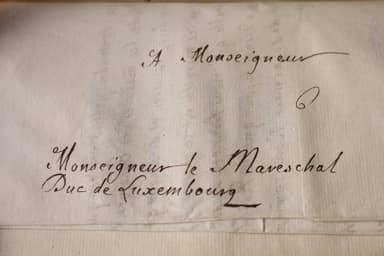 A Monseigneur
Monseigneur le Mareschal
Duc de Luxembourg